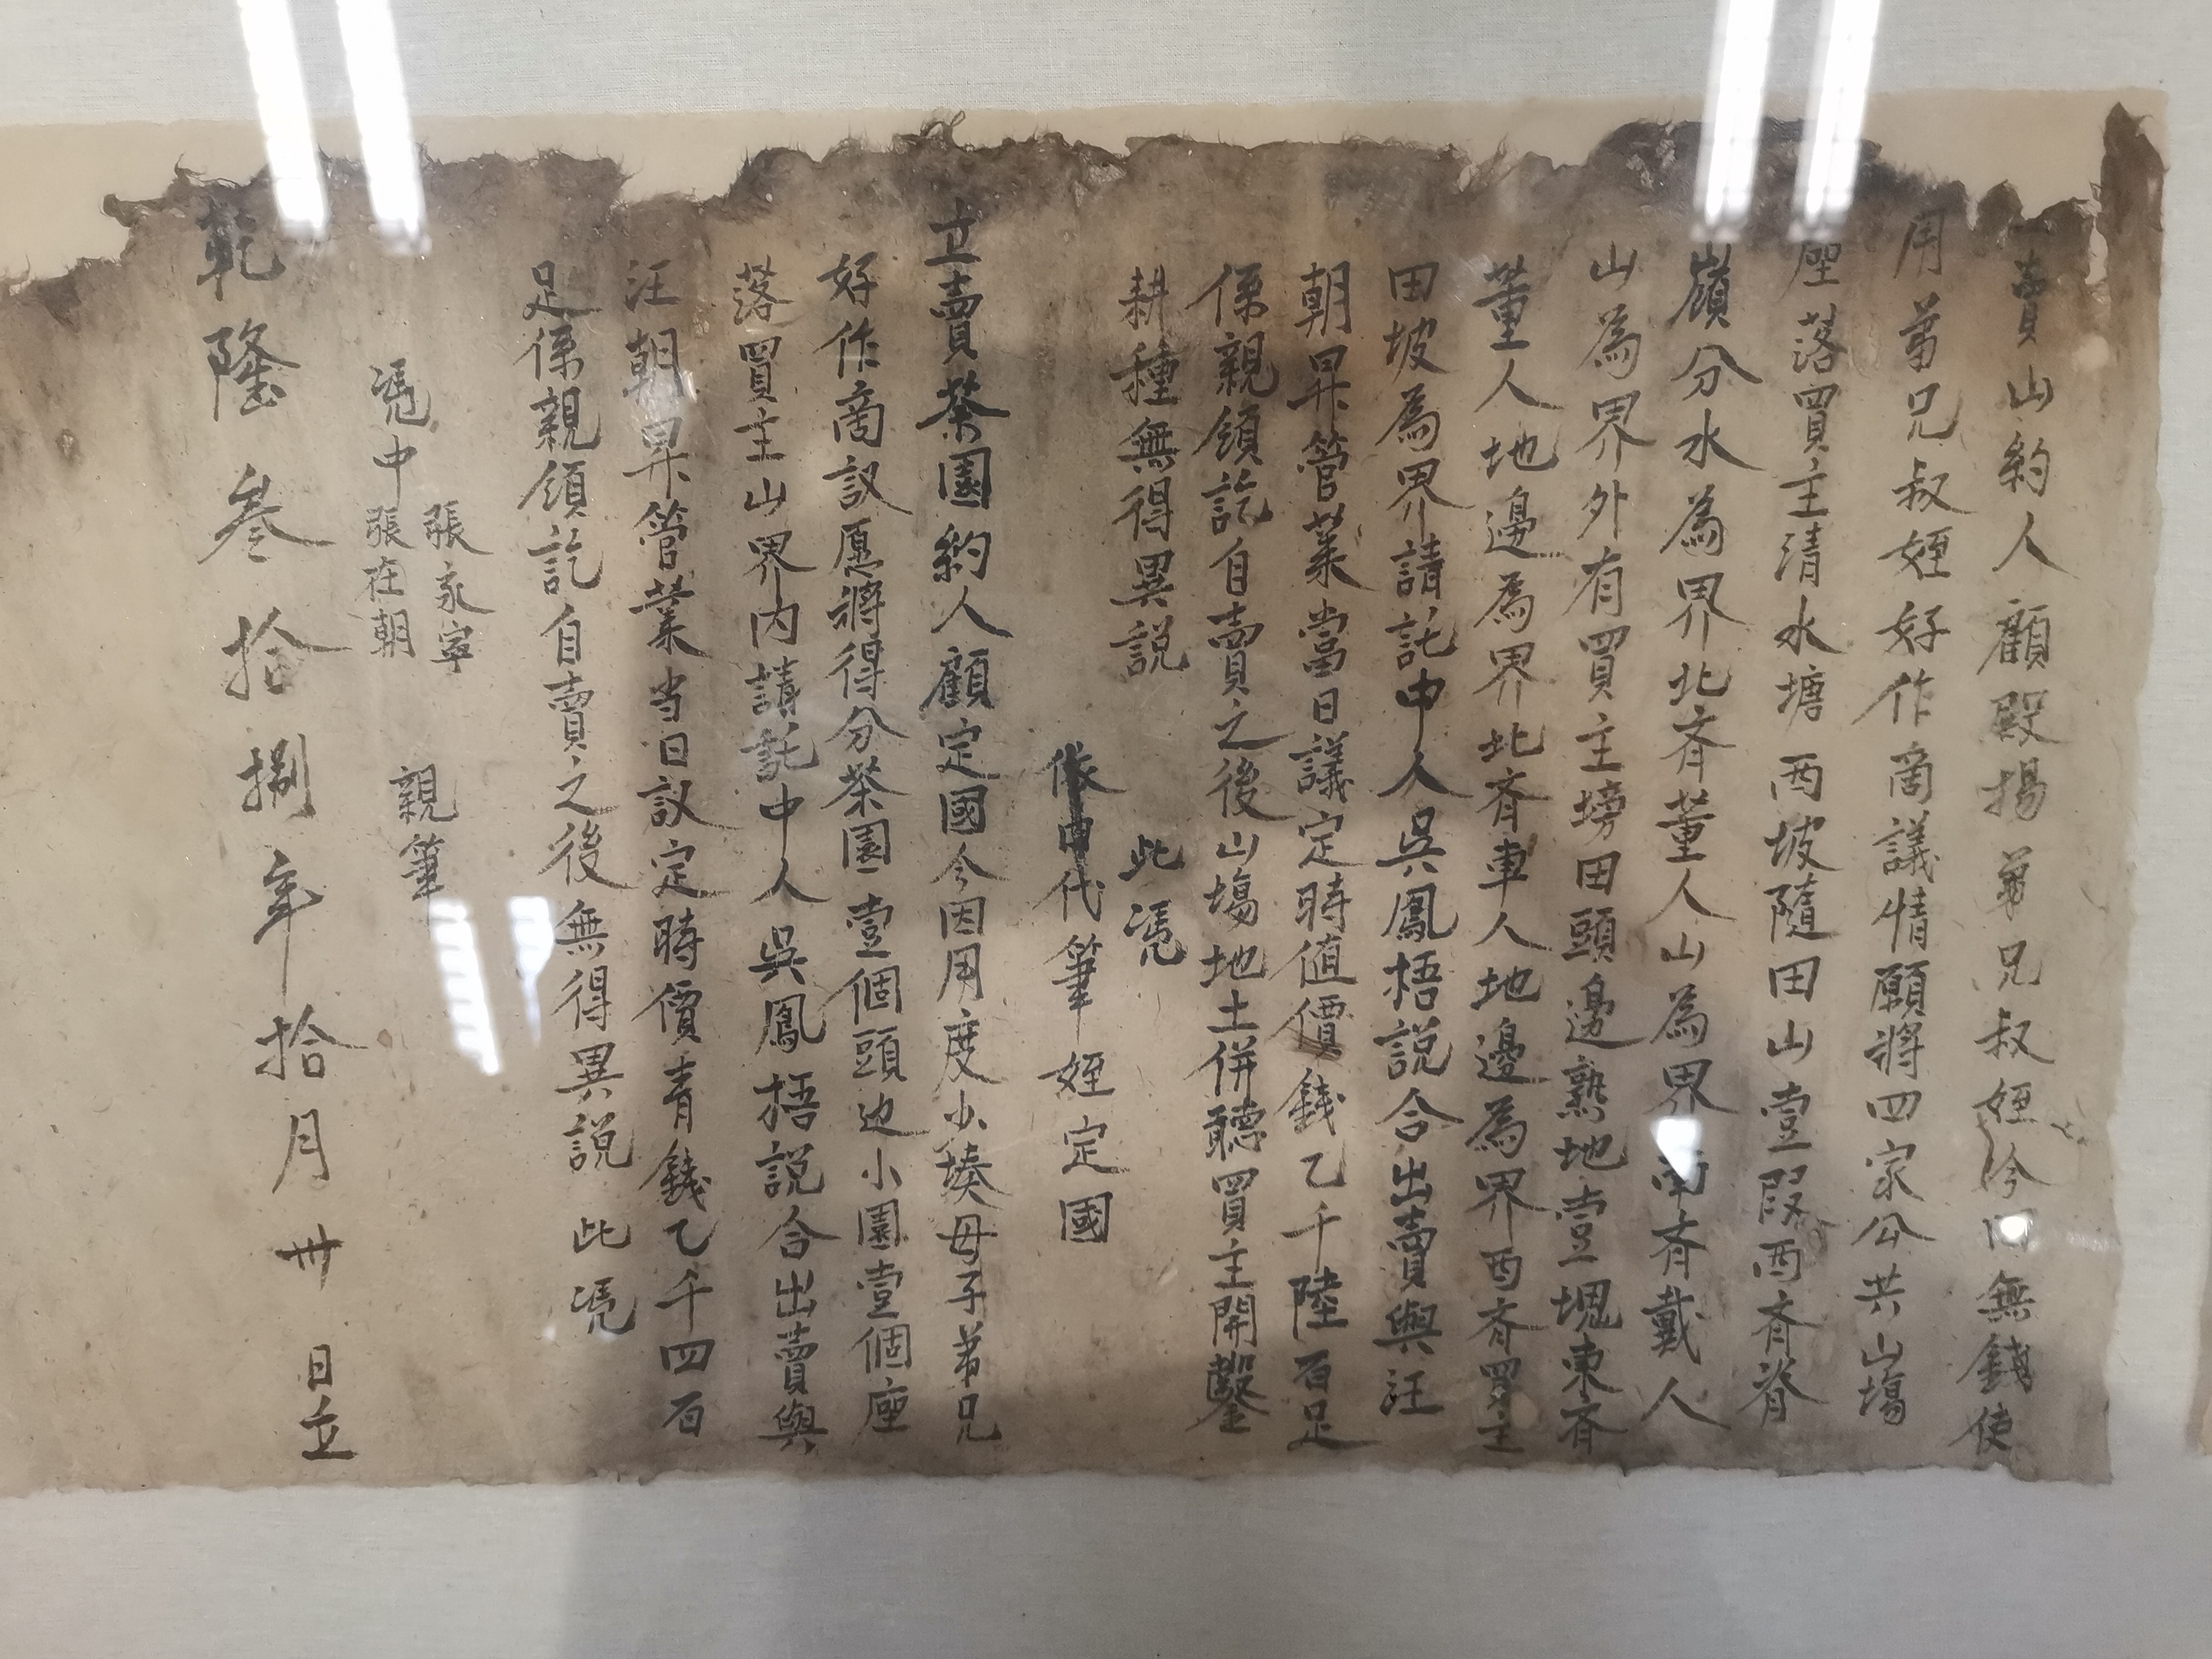 賣山約人顧殿揚弟兄叔姪今因無錢使
用弟兄叔姪好作啇議情願將四家公共山塲
壂落買主清水塘西坡隨田山壹叚西斉脊
嶺分水為界北斉董人山為界南斉戴人
山為界外有買主塝田頭邊熟地壹塊東斉
董人地邊為界北斉車人地邊為界西斉買主
田坡為界請託中人吳鳳梧説合出賣與汪
朝昇管業當日議定時值價錢乙千陸百足
係親領訖自賣之後山塲地土併聽買主開鑿
耕種無得異説 此凴
代筆姪定國
立賣茶園約人顧定國今因用度少湊母子弟兄
好作啇议愿將得分茶園壹個頭边小園壹個座
落買主山界内請託中人吳鳳梧説合出賣與
汪朝昇管業当日议定時價青錢乙千四百
足係親領訖自賣之後無得異説 此凴
張家寕
凴中張在朝 親筆
乾隆叁拾捌年拾月卅日立